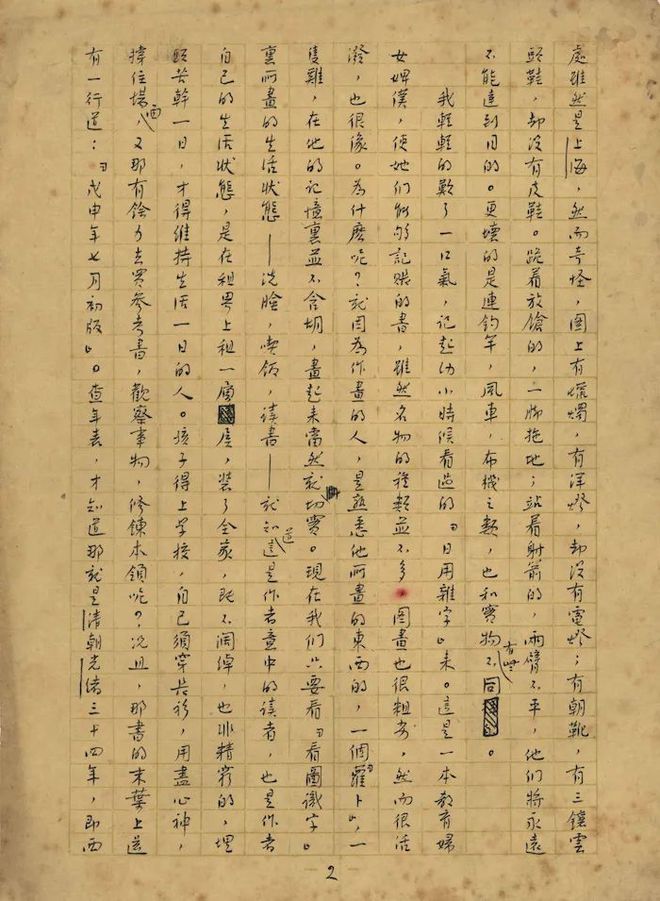 處雖然是上海,然而奇怪,圖上有蠟燭,有洋燈,却沒有電燈;有朝靴,有三鑲雲
頭鞋,却沒有皮鞋。跪着放鎗的,一脚拖地;站着射箭的,兩臂不平,他們將永遠
不能達到目的。更壞的是連釣竿,風車,布機之類,也和實物有些不同。
我輕輕的歎了一口氣,記起幼小時候看過的『日用雜字』來。這是一本教育婦
女婢僕,使她們能够記賬的書,雖然名物的種類並不多,圖畫也很粗劣,然而很活
潑,也很像。為什麼呢?就因為作畫的人,是熟悉他所畫的東西的,一個『蘿卜』,一
隻雞,在他的記憶裏並不含胡,畫起來當然就切實。現在我們只要看『看圖識字』
裏所畫的生活狀態——洗臉,喫飯,讀書——就知道這是作者意中的讀者,也是作者
自己的生活狀態,是在租界上租一層屋,裝了全家,既不闊綽,也非精窮的,埋
頭苦幹一日,才得維持生活一日的人。孩子得上學校,自己須穿長衫,用盡心神,
撑住場面,又那有餘力去買參考書,觀察事物,修鍊本領呢?況且,那書的末葉上還
有一行道:『戊申年七月初版』。查年表,才知道那就是清朝光緒三十四年,即西
2